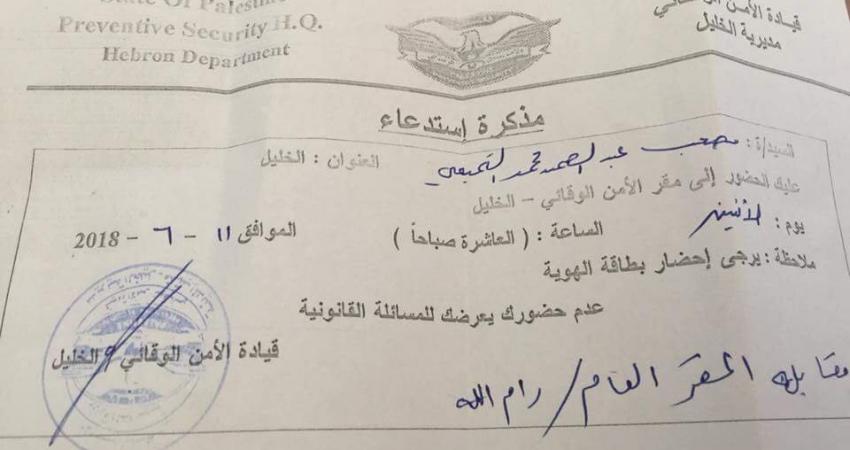 State Of Palestine
Preventive Security H.Q.
Hebron Department
قيادة الأمن الوقائي
مديرية الخليل
مذكرة إستدعاء
السيد/ة : مصعب عبد الصمد محمد التميمي العنوان : الخليل
عليك الحضور إلى مقر الأمن الوقائي – الخليل
يوم : الاثنين الساعة : ( العاشرة صباحاً ) الموافق ١١ - ٦ - 2018
ملاحظة : يرجى إحضار بطاقة الهوية
عدم حضورك يعرضك للمسائلة القانونية
قيادة الأمن الوقائي / الخليل
مقابله المقر العام / رام الله